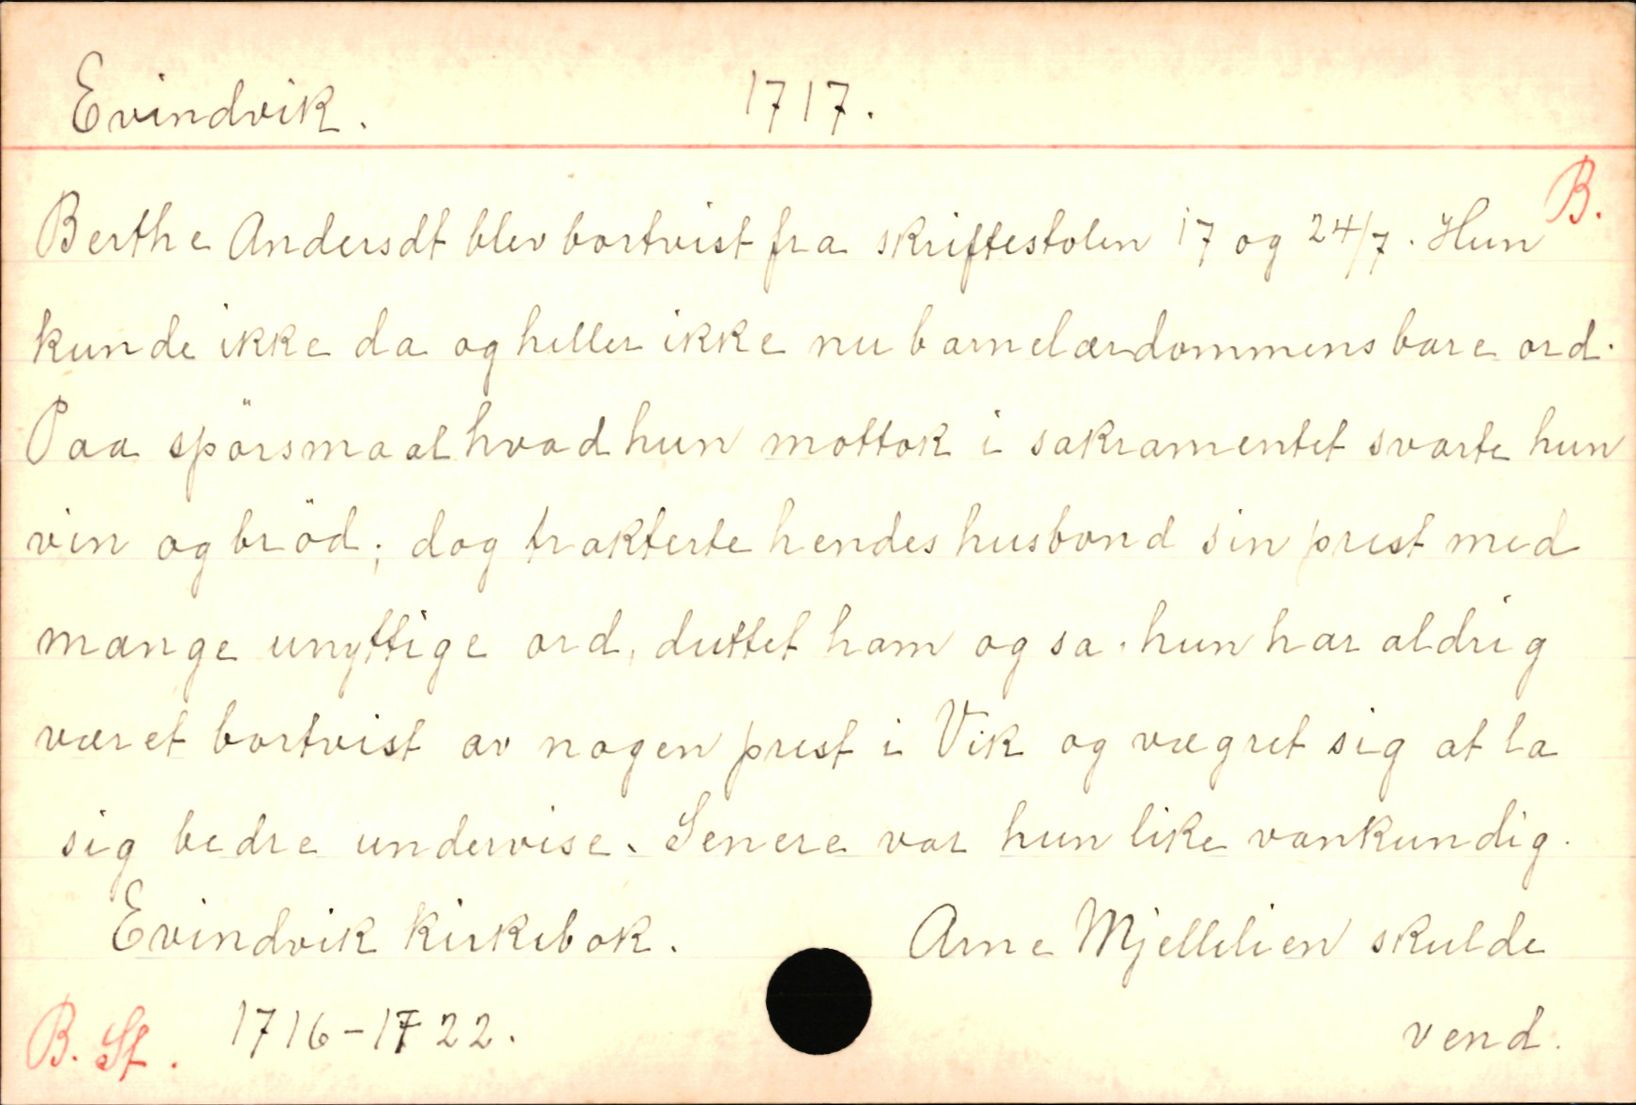 Evindvik. 1717.
B.
Berthe Andersdt blev bortvist fra skriftestolen 17 og 24/7. Hun
kunde ikke da og heller ikke nu barnelærdommens bare ord.
Paa spörsmaal hvad hun mottok i sakramentet svarte hun
vin og bröd; dog trakterte hendes husbond sin prest med
mange unyttige ord, duttet ham og sa. hun har aldrig
været bortvist av nogen prest i Vik og vægret sig at la
sig bedre undervise. Senere var hun like vankundig.
Evindvik Kirkebok. Arne Mjellilien skulde
B. St. 1716-1722. vend.